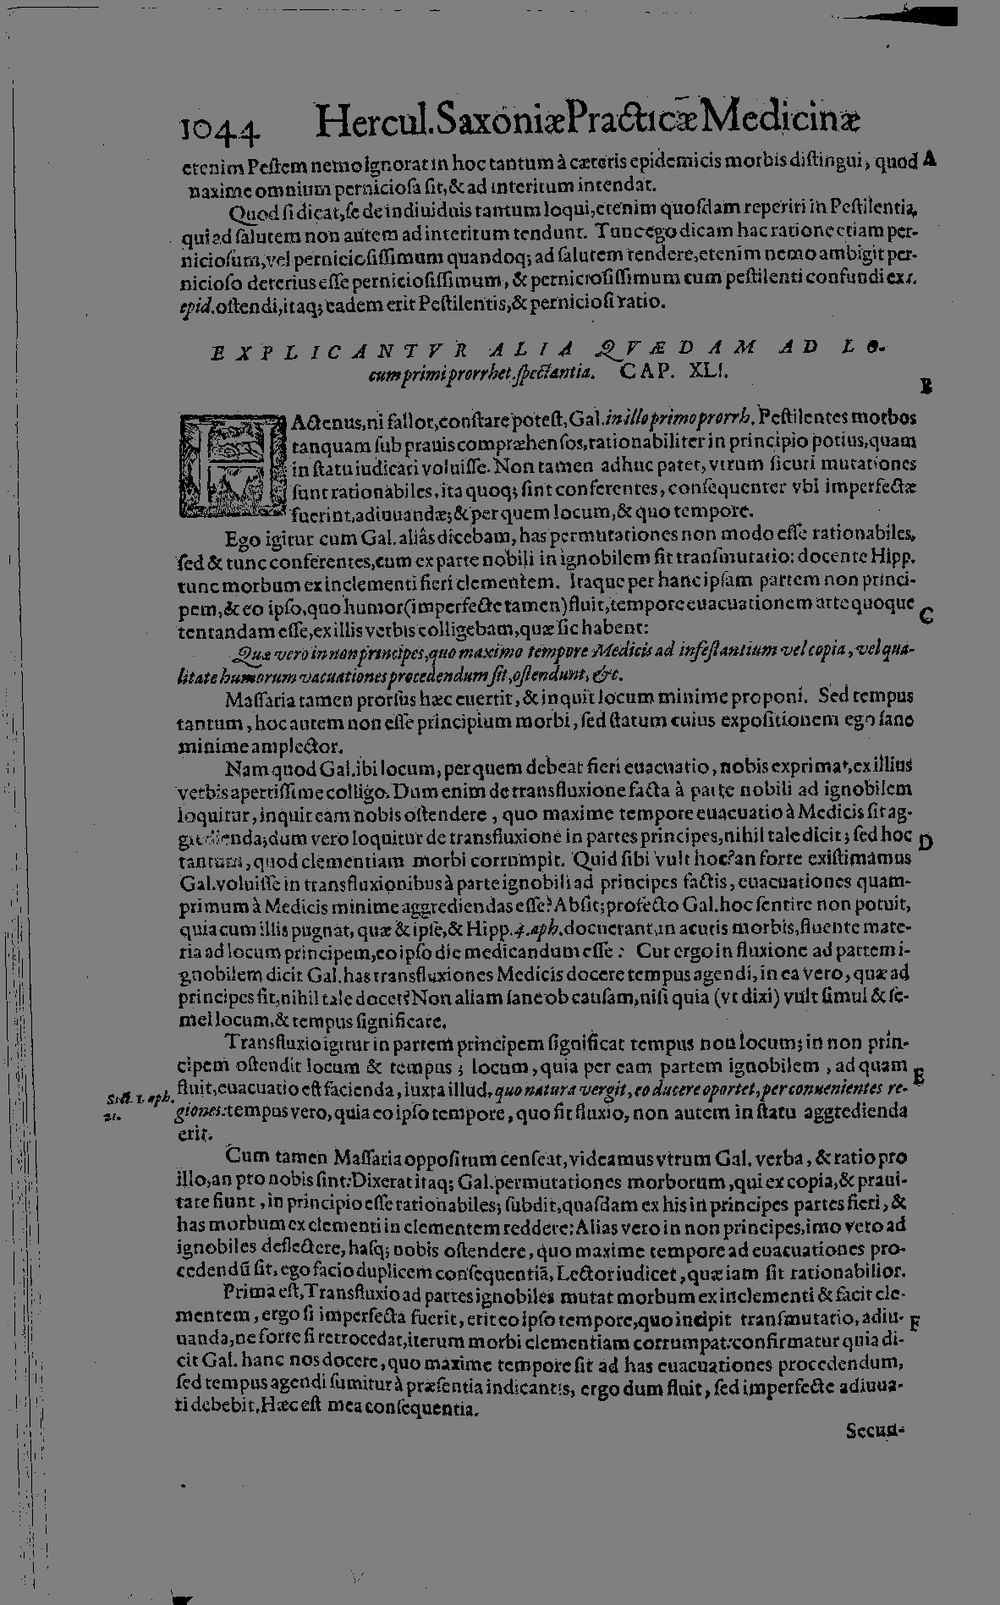 1044 Hercul. Saxoniæ Practicæ Medicinæ
etenim Pestem nemo ignorat in hoc tantum à cæteris epidemicis morbis distingui, quod A
naxime omnium perniciosa sit, & ad interitum intendat.
Quod si dicat, se de indiuiduis tantum loqui, etenim quosdam reperiri in Pestilentia,
qui ad salutem non autem ad interitum tendunt. Tunc ego dicam hac ratione etiam per-
niciosum, vel perniciosissimum quandoq; ad salutem tendere, etenim nemo ambigit per-
nicioso deterius esse perniciosissimum, & perniciosissimum cum pestilenti confundi ex 1.
epid. ostendi, itaq; eadem erit Pestilentis, & perniciosi ratio.
EXPLICANTVR ALIA QVÆDAM AD LO-
cum primi prorrhet. spectantia. CAP. XLI.
B
HActenus, ni fallor, constare potest, Gal. in illo primo prorrh. Pestilentes morbos
tanquam sub prauis compræhensos, rationabiliter in principio potius, quam
in statu iudicari voluisse. Non tamen adhuc patet, vtrum sicuti mutationes
sunt rationabiles, ita quoq; sint conferentes, consequenter vbi imperfectæ
fuerint, adiuuandæ; & per quem locum, & quo tempore.
Ego igitur cum Gal. aliâs dicebam, has permutationes non modo esse rationabiles,
sed & tunc conferentes, cum ex parte nobili in ignobilem fit transmutatio: docente Hipp.
tunc morbum ex inclementi fieri clementem. Itaque per hanc ipsam partem non princi-
pem, & eo ipso, quo humor (imperfecte tamen) fluit, tempore euacuationem arte quoque C
tentandam esse, ex illis verbis colligebam, quæ sic habent:
Quæ vero in non principes, quo maximo tempore Medicis ad infestantium vel copia, vel qua-
litate humorum vacuationes procedendum sit, ostendunt, &c.
Massaria tamen prorsus hæc euertit, & inquit locum minime proponi. Sed tempus
tantum, hoc autem non esse principium morbi, sed statum cuius expositionem ego sane
minime amplector.
Nam quod Gal. ibi locum, per quem debeat fieri euacuatio, nobis exprimat, ex illius
verbis apertissime colligo. Dum enim de transfluxione facta à parte nobili ad ignobilem
loquitur, inquit eam nobis ostendere, quo maxime tempore euacuatio à Medicis sit ag-
gredienda; dum vero loquitur de transfluxione in partes principes, nihil tale dicit; sed hoc D
tantum, quod clementiam morbi corrumpit. Quid sibi vult hoc? an forte existimamus
Gal. voluisse in transfluxionibus à parte ignobili ad principes factis, euacuationes quam-
primum à Medicis minime aggrediendas esse? Absit; profecto Gal. hoc sentire non potuit,
quia cum illis pugnat, quæ & ipse, & Hipp. 4. aph. docuerant, in acutis morbis, fluente mate-
ria ad locum principem, eo ipso die medicandum esse: Cur ergo in fluxione ad partem i-
gnobilem dicit Gal. has transfluxiones Medicis docere tempus agendi, in ea vero, quæ ad
principes fit, nihil tale docet? Non aliam sane ob causam, nisi quia (vt dixi) vult simul & se-
mel locum, & tempus significare.
Transfluxio igitur in partem principem significat tempus non locum; in non prin-
cipem ostendit locum & tempus; locum, quia per eam partem ignobilem, ad quam E
Sect. 1. aph. 21.
fluit, euacuatio est facienda, iuxta illud, quo natura vergit, eo ducere oportet, per conuenientes re-
giones: tempus vero, quia eo ipso tempore, quo fit fluxio, non autem in statu aggredienda
erit.
Cum tamen Massaria oppositum censeat, videamus vtrum Gal. verba, & ratio pro
illo, an pro nobis sint: Dixerat itaq; Gal. permutationes morborum, qui ex copia, & praui-
tate fiunt, in principio esse rationabiles; subdit, quasdam ex his in principes partes fieri, &
has morbum ex clementi in clementem reddere: Alias vero in non principes, imo vero ad
ignobiles deflectere, hasq; nobis ostendere, quo maxime tempore ad euacuationes pro-
cedendū sit, ego facio duplicem consequentiā, Lector iudicet, quæ iam sit rationabilior.
Prima est, Transfluxio ad partes ignobiles mutat morbum ex inclementi & facit cle-
mentem, ergo si imperfecta fuerit, erit eo ipso tempore, quo incipit transmutatio, adiu- F
uanda, ne forte si retrocedat, iterum morbi clementiam corrumpat: confirmatur quia di-
cit Gal. hanc nos docere, quo maxime tempore sit ad has euacuationes procedendum,
sed tempus agendi sumitur à præsentia indicantis, ergo dum fluit, sed imperfecte adiuua-
ri debebit, Hæc est mea consequentia.
Secun-